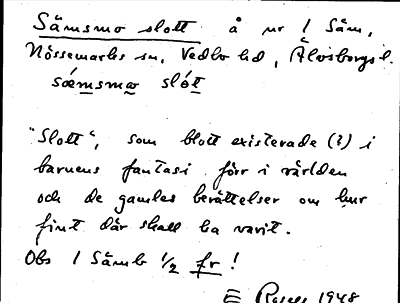 Sämsmo slott å nr 1 Säm,
Nössemarks sn, Vedbo hd, Älvsborgs l.
sǽmsmω slót
"Slott", som blott existerade (?) i
barnens fantasi förr i världen
och de gamles berättelser om hur
fint där skall ha varit.
Obs 1 Sämb 1/2 fr!
E 1948